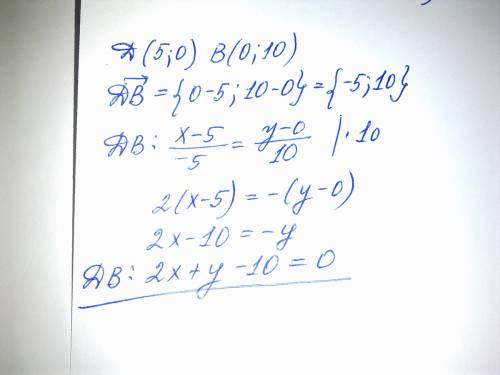 Д(5;0) B(0;10)
ДB = {0-5; 10-0} = {-5; 10}
ДB: x-5/-5 = y-0/10 |·10
2(x-5) = -(y-0)
2x-10 = -y
ДB: 2x+y-10 = 0